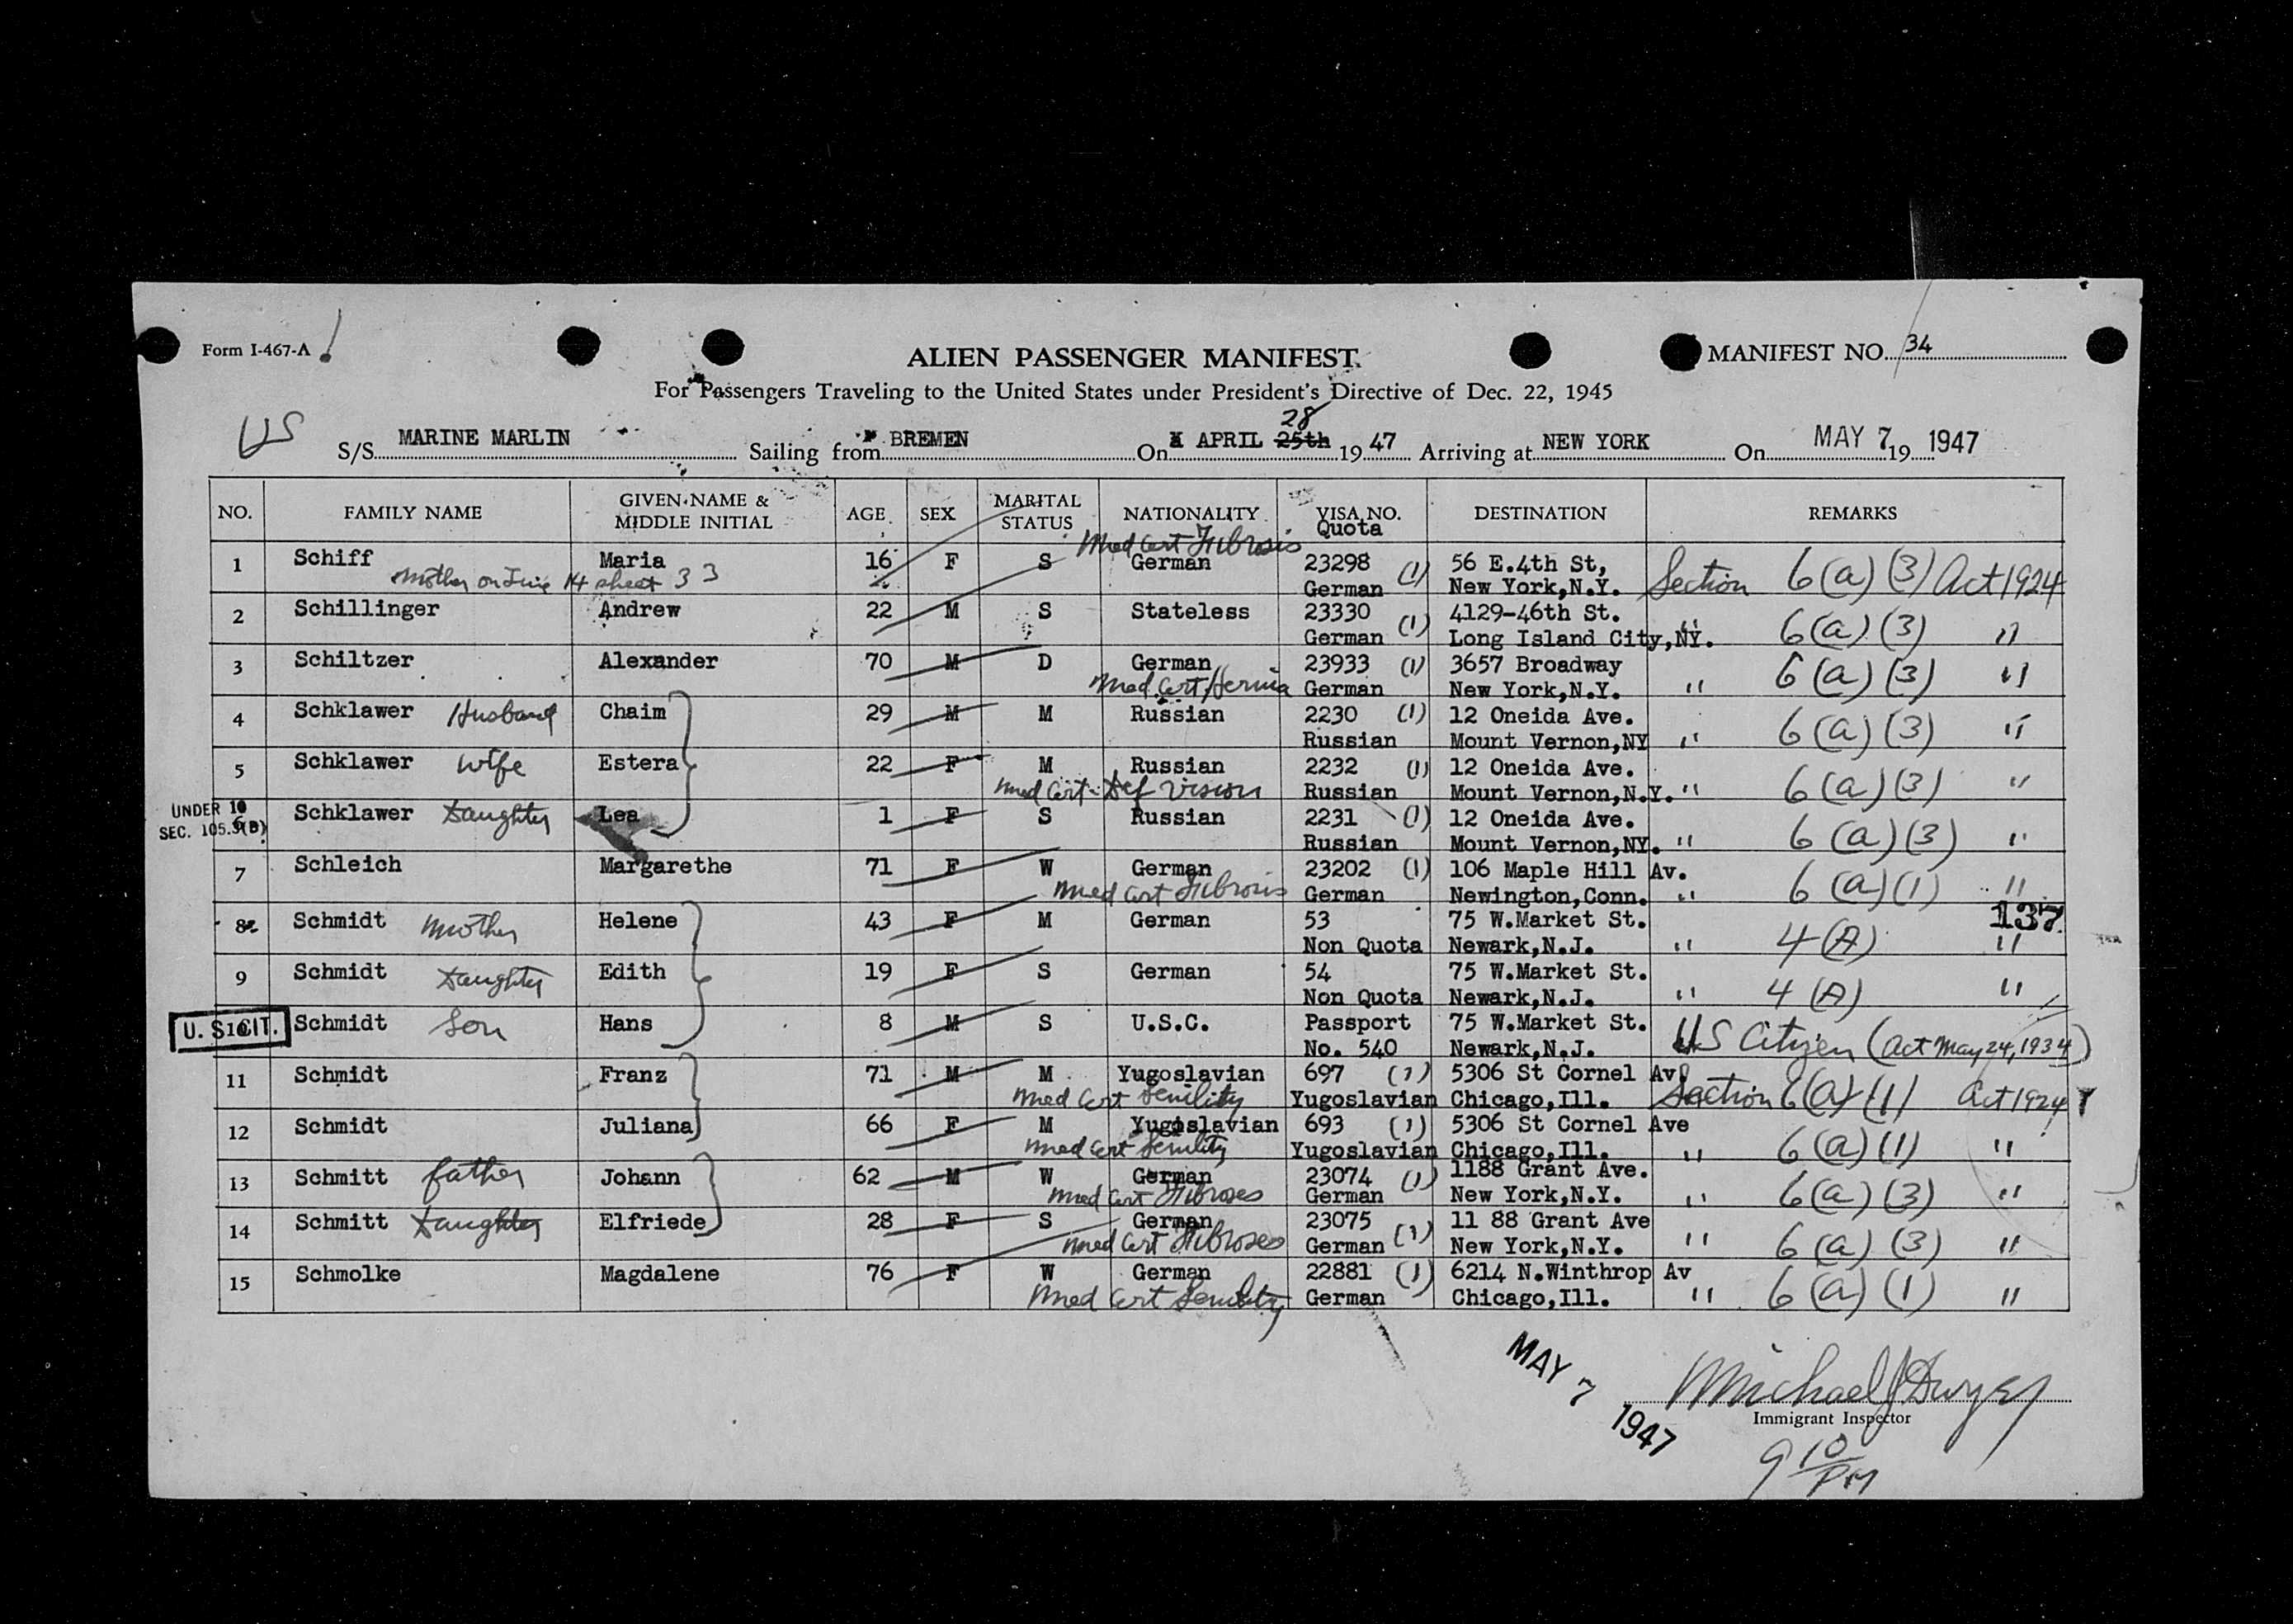 Form I-467-A
ALIEN PASSENGER MANIFEST
MANIFEST NO. 34
For Passengers Traveling to the United States under President's Directive of Dec. 22, 1945
US
S/S MARINE MARLIN Sailing from BREMEN On APRIL 25th 28 19 47 Arriving at NEW YORK On MAY 7 19 1947
NO. FAMILY NAME GIVEN NAME & MIDDLE INITIAL AGE SEX MARITAL STATUS NATIONALITY VISA NO. Quota DESTINATION REMARKS
Med Cert Fibrosis
1 Schiff Maria 16 F S German 23298 (1) 56 E.4th St, Section 6(a)(3) Act 1924
Mother on Line 14 sheet 33 German New York,N.Y.
2 Schillinger Andrew 22 M S Stateless 23330 (1) 4129-46th St. " 6(a)(3) "
German Long Island City,NY.
3 Schiltzer Alexander 70 M D German 23933 (1) 3657 Broadway " 6(a)(3) "
Med Cert Hernia German New York,N.Y.
4 Schklawer Husband Chaim 29 M M Russian 2230 (1) 12 Oneida Ave. " 6(a)(3) "
Russian Mount Vernon,NY
5 Schklawer Wife Estera 22 F M Russian 2232 (1) 12 Oneida Ave. " 6(a)(3) "
Med Cert-Def Vision Russian Mount Vernon,N.Y.
UNDER 16
SEC. 105.3(B)
6 Schklawer Daughter Lea 1 F S Russian 2231 (1) 12 Oneida Ave. " 6(a)(3) "
Russian Mount Vernon,NY.
7 Schleich Margarethe 71 F W German 23202 (1) 106 Maple Hill Av. " 6(a)(1) "
Med Cert Fibrosis German Newington,Conn.
137
8 Schmidt Mother Helene 43 F M German 53 75 W.Market St. " 4(A) "
Non Quota Newark,N.J.
9 Schmidt Daughter Edith 19 F S German 54 75 W.Market St. " 4(A) "
Non Quota Newark,N.J.
U. S. CIT. 10 Schmidt Son Hans 8 M S U.S.C. Passport 75 W.Market St. US Citizen (Act May 24, 1934)
No. 540 Newark,N.J.
11 Schmidt Franz 71 M M Yugoslavian 697 (1) 5306 St Cornel Av Section 6(a)(1) Act 1924
Med Cert Senility Yugoslavian Chicago,Ill.
12 Schmidt Juliana 66 F M Yugoslavian 693 (1) 5306 St Cornel Ave " 6(a)(1) "
Med Cert Senility Yugoslavian Chicago,Ill.
13 Schmitt father Johann 62 M W German 23074 (1) 1188 Grant Ave. " 6(a)(3) "
Med Cert Fibroses German New York,N.Y.
14 Schmitt Daughter Elfriede 28 F S German 23075 (1) 11 88 Grant Ave " 6(a)(3) "
Med Cert Fibroses German New York,N.Y.
15 Schmolke Magdalene 76 F W German 22881 (1) 6214 N.Winthrop Av " 6(a)(1) "
Med Cert Senility German Chicago,Ill.
MAY 7 1947
Michael J Dwyer
Immigrant Inspector
9 10 PM